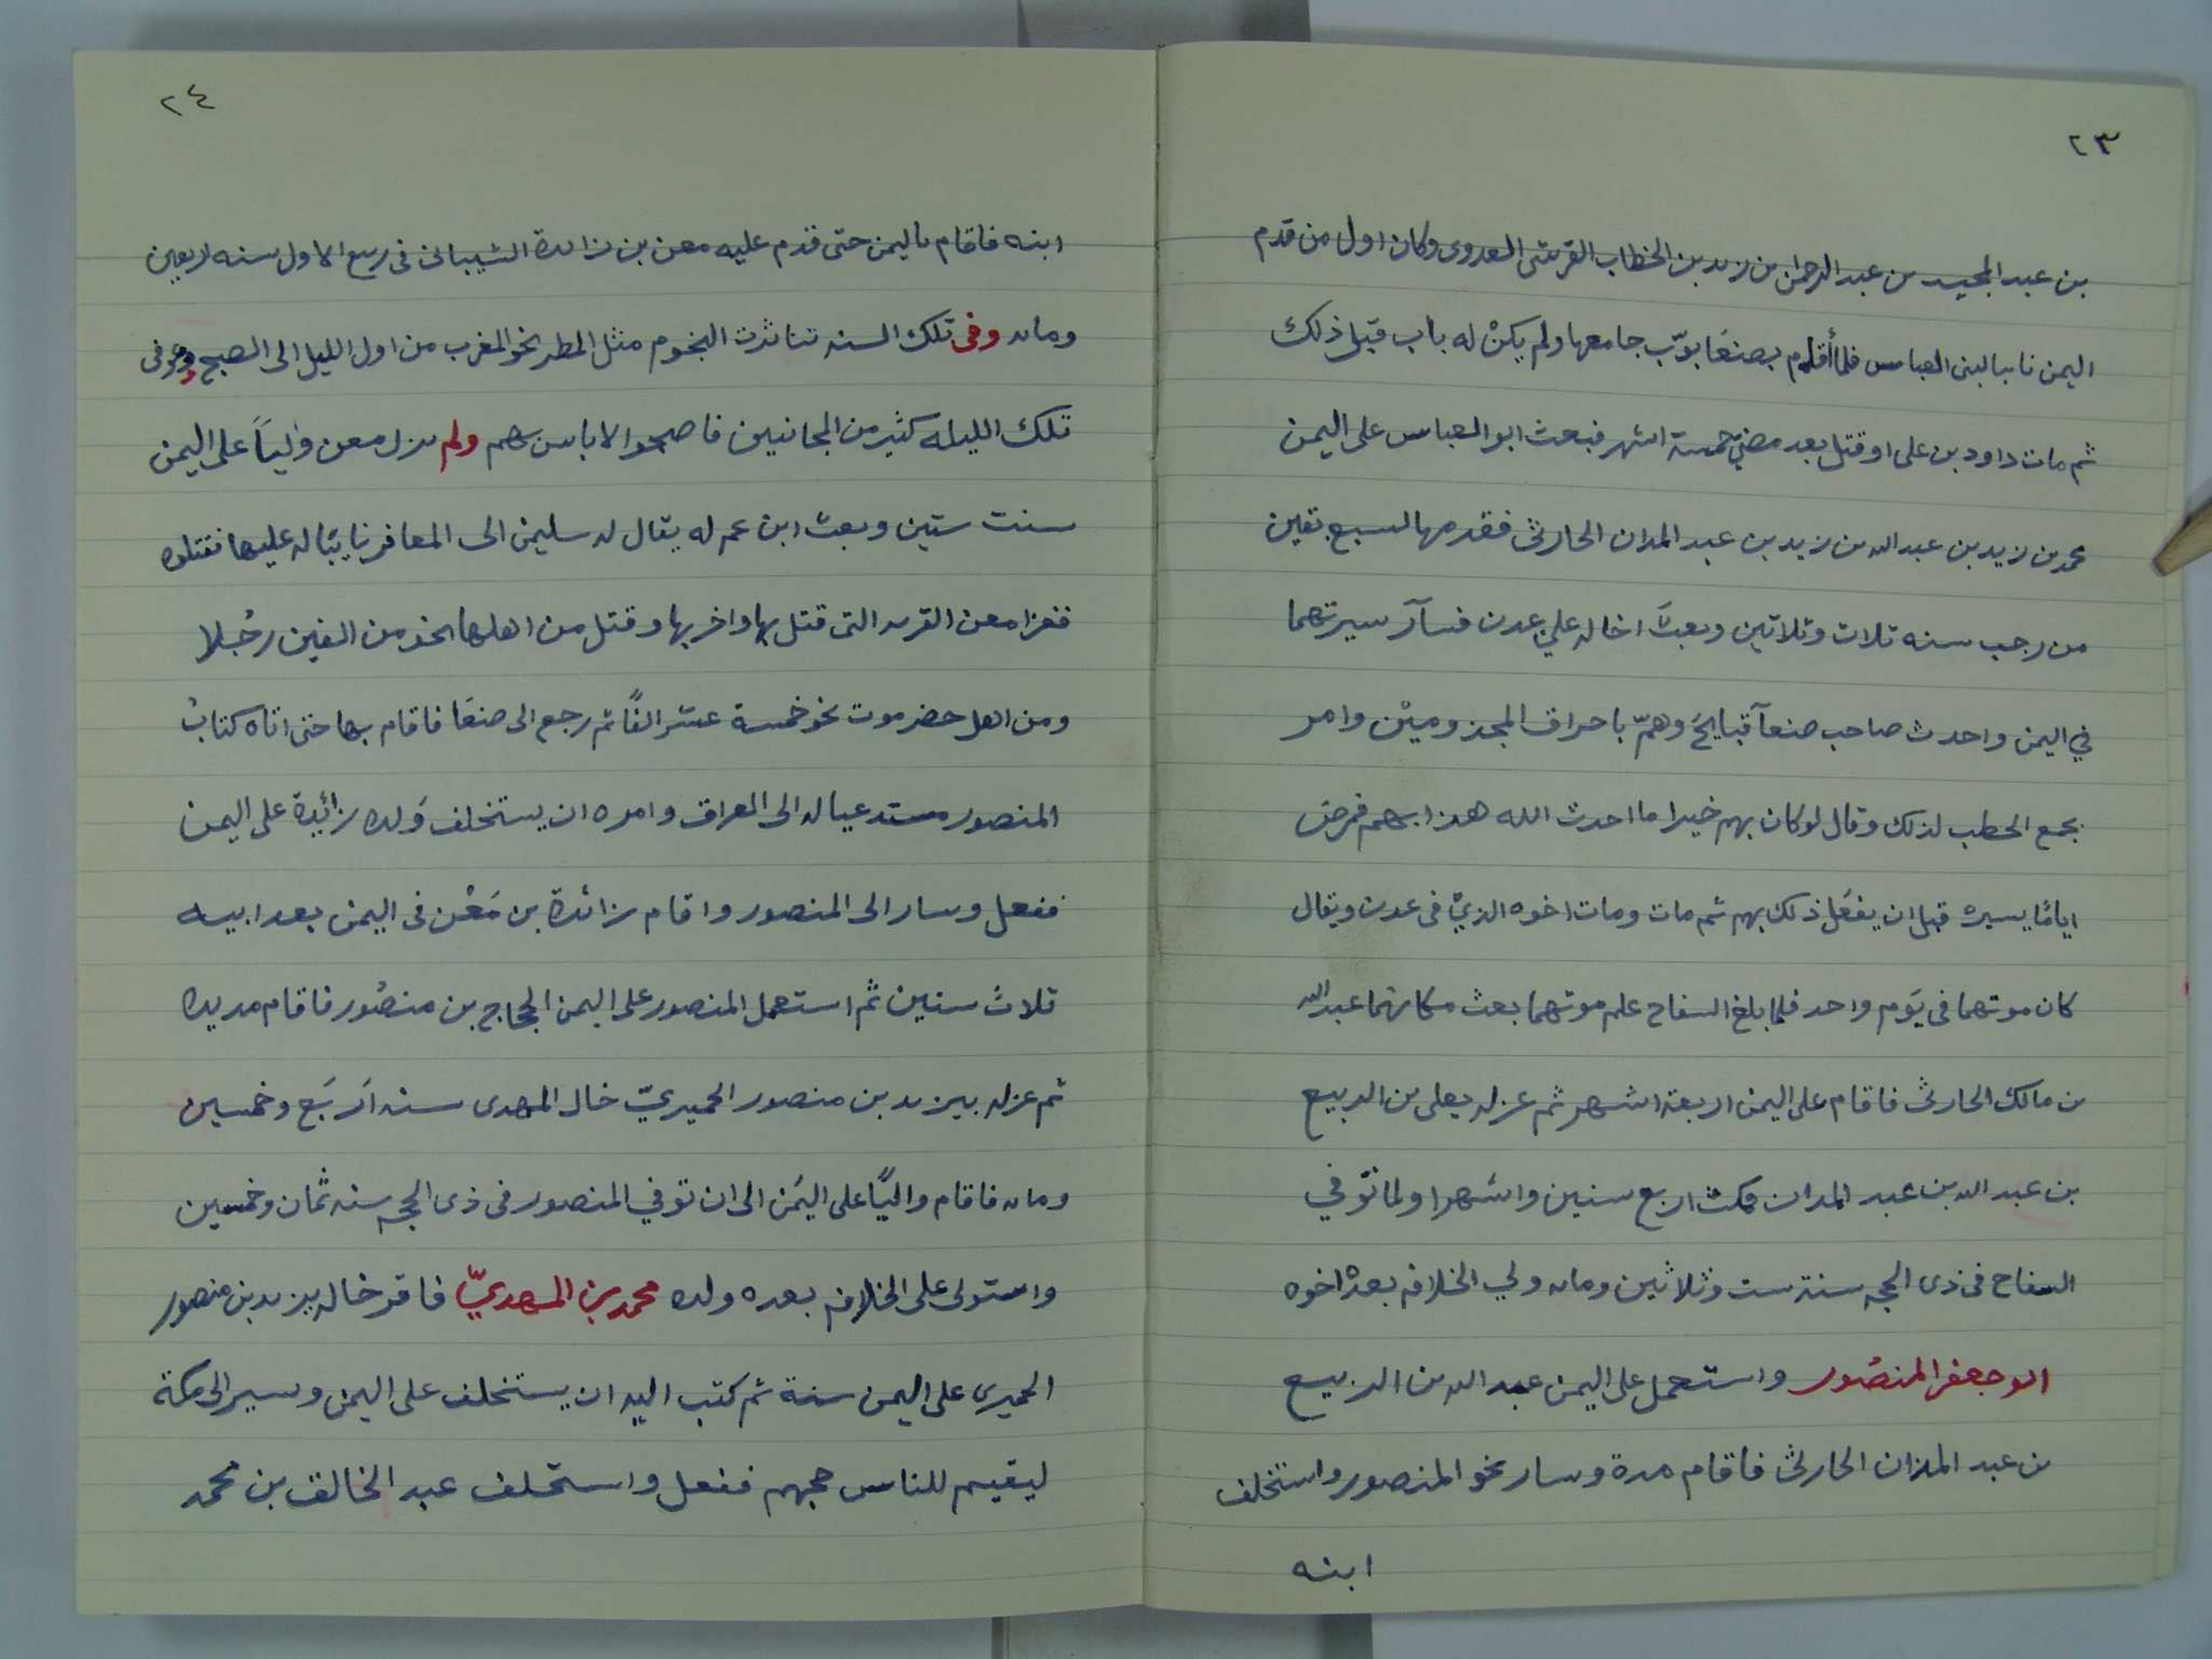 ٢٣
بن عبد المجيد بن عبد الرحمن بن زيد بن الخطاب القرشى العدوى وكان اول من قدم
اليمن نايبا لبنى العباس فلما أقدم بصنعَا بوّب جامعها ولم يكنْ له باب قبل ذلك
ثم مات داود بن على او قتل بعد مضي خمسة اشهر فبعث ابو العباس على اليمن
محمد بن زيد بن عبد الله بن زيد بن عبد المدان الحارثى فقدمها لسبع بقين
من رجب سنه تلات وثلاتين وبعثَ اخاله علي عدن فسآر سيرتهما
في اليمن واحدث صاحب صنعآ قبايحَ وهمّ باحراق المجذومينْ وامر
بجمع الحطب لذلك وقال لوكان بهم خيرا ما احدث الله هذا بهم فمرض
ايامًا يسيره قبل ان يفعَل ذلك بهم ثم مات ومات اخوه الذيْ فى عدن ويقال
كان موتهما فى يَوم واحد فلما بلغ السفاح علم موتهما بعث مكانهما عبد الله
بن مالك الحارثى فاقام على اليمن اربعة اشهر ثم عزله بعلى بن الربيع
بن عبد الله بن عبد المدان فمكث اربع سنين واشهرا ولما توّفي
السفاح فى ذى الحجه سنة ست وثلاثين ومايه ولي الخلافه بعدْ اخوه
ابو جعفر المنصُور واستعمل على اليمن عبد الله بن الربيع
بن عبد المدان الحارثى فاقام مدة وسار نحو المنصور واستخلف
ابنه
٢٤
ابنه فاقام باليمن حتى قدم عليه معن بن زائدة الشيبانى فى ربيع الاول سنه اربعين
ومايه وفى تلك السنه تناثرت النجوم مثل المطر نحو المغرب من اول الليل الى الصبح وعوفى
تلك الليله كثير من المجانيين فاصبحوا لاباس بهم ولم يزل معن واليَاً على اليمن
سنت ستين وبعث ابن عم له يقال له سليمن الى المعافر نايبًا له عليها فقتلوه
فغزا معن القريه التى قتل بها واخربها وقتل من اهلها نحو من الفين رجُلا
ومن اهل حضرموت نحو خمسة عشر الفًا ثم رجع الى صنعَا فاقام بها حتى اتاه كتابُ
المنصور مستدعيا له الى العراق وامره ان يستخلف وَلده زائدة على اليمن
ففعل وسار الى المنصور واقام زائدة بن مَعْن فى اليمن بعد ابيه
ثلاث سنين ثم استعمل المنصور على اليمن الحجاج بن منصُور فاقام مديده
ثم عزله بيزيد بن منصور الحميريّ خال المهدى سنه اَربَع وخمسين
ومايه فاقام واليًا على اليَمن الى ان توفي المنصور فى ذى الحجه سنه ثمان وخمسين
واستولى على الخلافه بعده ولده محمد بن المهديّ فاقر خاله يزيد بن منصور
الحميرى على اليمن سنة ثم كتب اليه ان يستخلف على اليمن ويسير الى مكة
ليقيم للناس حجهم ففعل واستخلف عبد الخالق بن محمد